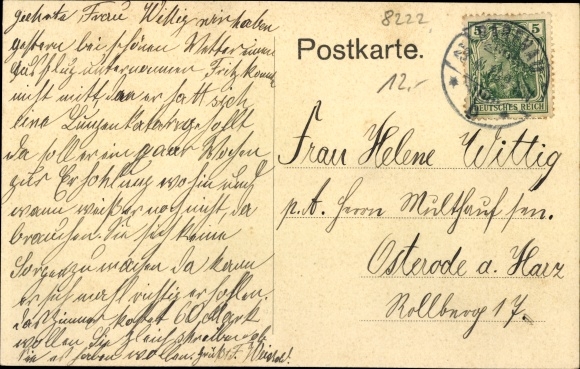 geehrte Frau Wittig wir haben
gestern bei schönen Wetter einen
Ausflug unternommen Fritz konnte
nicht mit den er hatt sich
eine Lungenkatarr geholt
da soll er ein paar Wochen
zur Erhohlung wohin und
wann weiß er noch nicht, da
brauchen Sie sich keine
Sorgen zu machen da kann
er sich mahl richtig erhohlen.
das Zimmer kostet 60 Mark
wollen Sie gleich schreiben ob
Sie es haben wollen. Gruß
8222
Postkarte.
12,-
5
DEUTSCHES REICH
Frau Helene Wittig
p. A. Herrn Multhauf sen.
Osterode a. Harz
Rollberg 17.